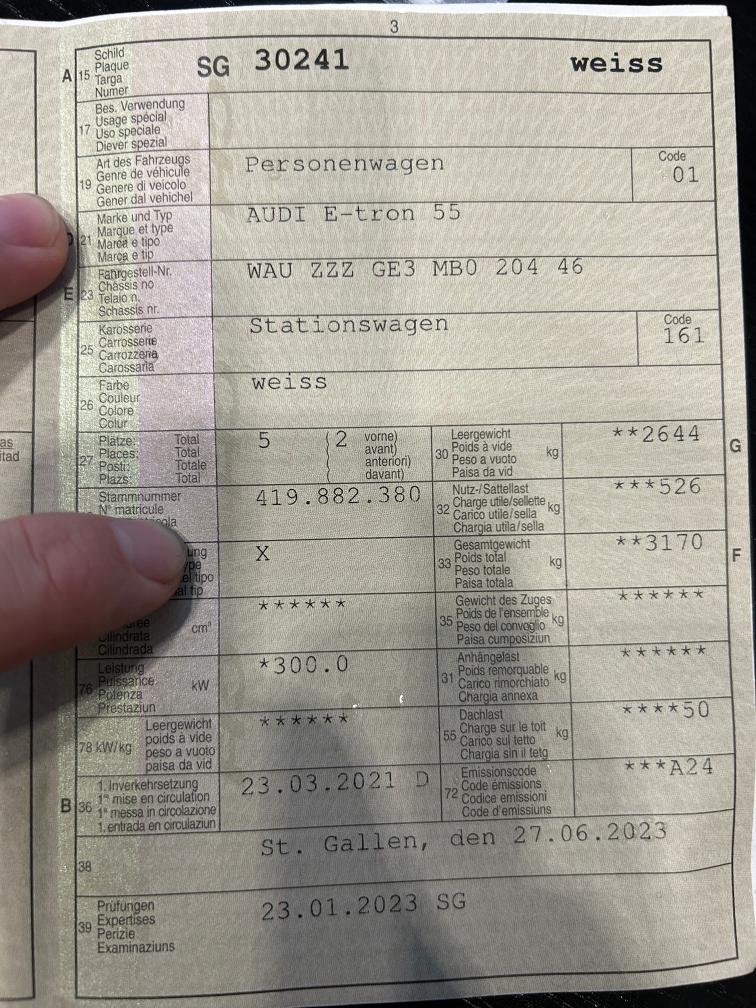 3
A 15 Schild
Plaque
Targa
Numer
SG 30241 weiss
17 Bes. Verwendung
Usage spécial
Uso speciale
Diever spezial
19 Art des Fahrzeugs
Genre de véhicule
Genere di veicolo
Gener dal vehichel
Personenwagen
Code
01
21 Marke und Typ
Marque et type
Marca e tipo
Marca e tip
AUDI E-tron 55
E 23 Fahrgestell-Nr.
Châssis no
Telaio n.
Schassis nr.
WAU ZZZ GE3 MB0 204 46
25 Karosserie
Carrosserie
Carrozzeria
Carossaria
Stationswagen
Code
161
26 Farbe
Couleur
Colore
Colur
weiss
27 Plätze: Total
Places: Total
Posti: Totale
Plazs: Total
5 (2 vorne)
avant)
anteriori)
davant)
30 Leergewicht
Poids à vide
Peso a vuoto
Paisa da vid
kg
**2644
G
Stammnummer
N° matricule
419.882.380
32 Nutz-/Sattellast
Charge utile/sellette
Carico utile/sella
Chargia utila/sella
kg
***526
ung
ype
el tipo
al tip
X
33 Gesamtgewicht
Poids total
Peso totale
Paisa totala
kg
**3170
F
Cilindrata
Cilindrada
cm³
******
35 Gewicht des Zuges
Poids de l'ensemble
Peso del convoglio
Paisa cumposiziun
kg
******
76 Leistung
Puissance
Potenza
Prestaziun
kW
*300.0
31 Anhängelast
Poids remorquable
Carico rimorchiato
Chargia annexa
kg
******
78 kW/kg
Leergewicht
poids à vide
peso a vuoto
paisa da vid
******
55 Dachlast
Charge sur le toit
Carico sul tetto
Chargia sin il tetg
kg
****50
B 36 1. Inverkehrsetzung
1re mise en circulation
1a messa in circolazione
1. entrada en circulaziun
23.03.2021 D
72 Emissionscode
Code émissions
Codice emissioni
Code d'emissiuns
***A24
38
St. Gallen, den 27.06.2023
39 Prüfungen
Expertises
Perizie
Examinaziuns
23.01.2023 SG